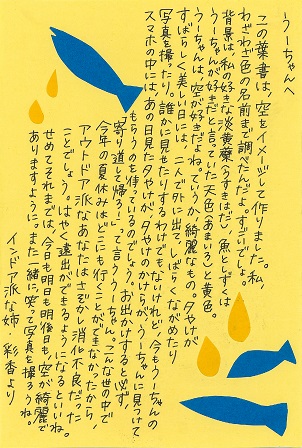 うーちゃんへ
この葉書は、空をイメージして作りました。私、
わざわざ色の名前まで調べたんだよ。すごいでしょ。
背景は、私の好きな淡黄蘗（うすきはだ）、魚としずくは
うーちゃんが好きだと言っていた天色（あまいろ）と黄色。
うーちゃんは、空が好きだよね。ていうか、綺麗なもの。夕やけが
すばらしく美しい日には、二人で外に出て、しばらくながめたり
写真を撮ったり。誰かに見せたりするわけでもないけれど、今もうーちゃんの
スマホの中には、あの日見た夕やけが、夕やけのかけらが、うーちゃんに見つけて
もらうのを待っているのでしょう。お出かけすると必ず
「寄り道して帰ろー」って言ううーちゃん。こんな世の中で
今年の夏休みはどこにも行くことができなかったから、
アウトドア派なあなたはさぞかし消化不良だった
ことでしょう。はやく遠出ができるようになるといいね。
せめてそれまでは、今日も明日も明後日も、空が綺麗で
ありますように。また一緒に、笑って写真を撮ろうね。
インドア派な姉・彩香より